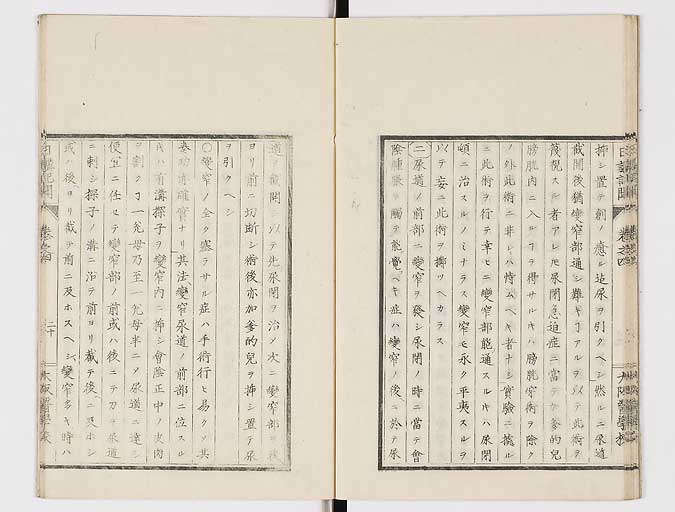 日講記聞
卷之四
大阪醫學校
挿シ置テ創ノ癒ル迄尿ヲ引クヘシ然ルニ尿道
截開後猶變窄部通シ難キヿアルヲ以テ此術ヲ
蔑視スル者アレモ尿閉急迫症ニ當テ加爹的兒
膀胱內ニ入ルヿヲ得サルキハ膀胱穿術ヲ除ク
ノ外此術ニ非レハ恃ムヘキ者ナシ實驗ニ據ル
ニ此術ヲ行テ幸ヒニ變窄部能通スルキハ尿閉
頓ニ治スルノミナラス變窄モ永ク平夷スルヲ
以テ妄ニ此術ヲ擲ツヘカラス
二尿道ノ前部ニ變窄ヲ發シ尿閉ノ時ニ當テ會
陰腫脹シ觸テ能覺ヘキ症ハ變窄ノ後ニ於テ尿
道ヲ截開シ以テ先尿閉ヲ治メ次ニ變窄部ヲ後
ヨリ前ニ切斷シ術後亦加爹的兒ヲ挿シ置テ尿
ヲ引クヘシ
○變窄ノ全ク塞テサル症ハ手術行ヒ易クソ其
奏功亦確實ナリ其法變窄尿道ノ前部ニ位スル
キハ有溝探子ヲ變窄內ニ挿シ會陰正中ノ皮肉
ヲ割クヿ一先毋乃至一先毋半ニソ尿道ニ達シ
便宜ニ任セテ變窄部ノ前或ハ後ニテ刀ヲ尿道
ニ刺シ探子ノ溝ニ沿テ前ヨリ截テ後ニ及ホシ
或ハ後ヨリ截テ前ニ及ホスヘシ變窄多キ時ハ
日講記聞
卷之四
二十
大阪醫學校